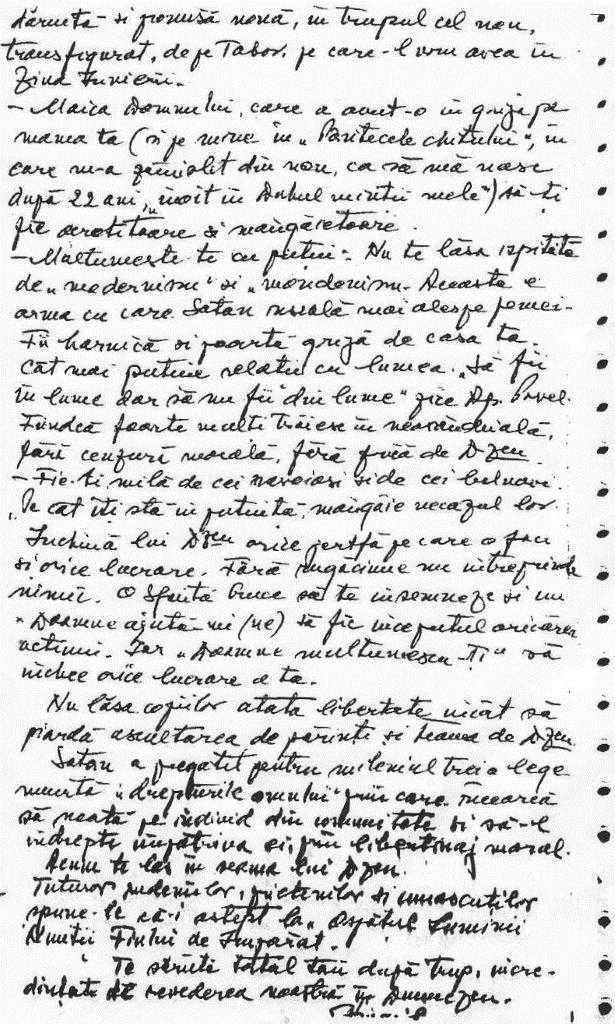 dăruită si promisă nouă, in trupul cel nou,
transfigurat, de pe Tabor, pe care-l vom avea in
Ziua Invierii.
- Maica Domnului, care a avut-o in grija pe
mama ta (si pe mine in „Pantecele chitului", in
care m-a zămislit din nou, ca să mă nasc
după 22 ani, „inoit in Duhul mintii mele") să-ti
fie ocrotitoare si mangăietoare.
- Multumeste-te cu putin. Nu te lăsa ispitită
de „modernism" si „mondenism. Aceasta e
arma cu care Satan insală mai ales pe femei.
Fii harnică si poartă grijă de casa ta.
Cat mai putine relatii cu lumea. „Să fii
in lume dar să nu fii din lume" zice Ap. Pavel.
Fiindcă foarte multi traiesc in neoranduială,
fără cenzură morală, fără frică de Dzeu.
- Fie-ti milă de cei nevoiasi si de cei bolnavi.
Pe cat iti stă in putintă, mangăie necazul lor.
Inchină lui Dzeu orice jertfă pe care o faci
si orice lucrare. Fără rugaciune nu intreprinde
nimic. O Sfintă Cruce să te insemneze si un
„Doamne ajută-mi (ne) să fie inceputul oricărei
actiuni. Iar „Doamne multumescu-Ti" să
incheie orice lucrare a ta.
Nu lăsa copiilor atata libertate incat să
piardă ascultarea de părinti si teama de Dzeu.
Satan a pregatit pentru mileniul trei o lege
numită „drepturile omului" prin care incearcă
să scoată pe individ din comunitate si să-l
indrepte impotriva ei, prin libertinaj moral.
Acum te las in seama lui Dzeu.
Tuturor rudeniilor, prietenilor si cunoscutilor
spune-le că-i astept la „Ospătul Luminii
Nuntii Fiului de Impărat.
Te sărută tatăl tău după trup, incre-
dintat de revederea noastră in Dumnezeu.